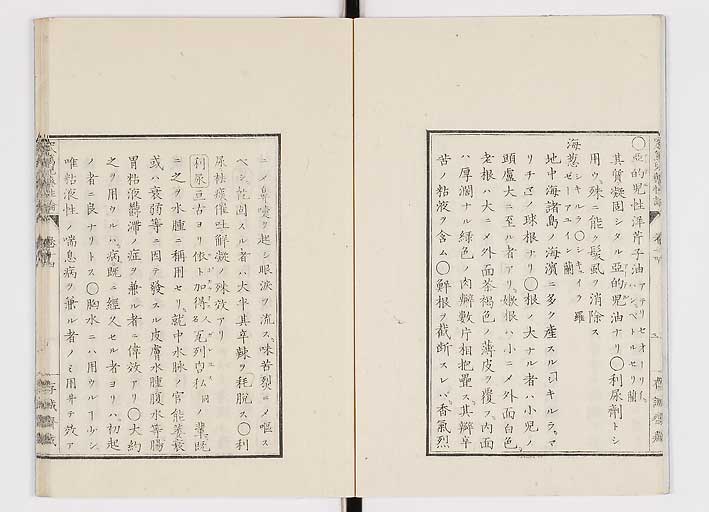 〇亞的兒性洋芹子油
其質凝固シタル亞的兒油ナリ〇利尿劑トシ
用ウ殊ニ能ク髮虱ヲ消除ス
海葱 シキルラ〇シキイラ羅
ゼーアユイン蘭
地中海諸島ノ海濱ニ多ク産スル「シキルラマ
リチマ」ノ球根ナリ〇根ノ大ナル者ハ小兒ノ
頭盧大ニ至ル者アリ嫩根ハ小ニメ外面白色
老根ハ大ニメ外面茶褐色ノ薄皮ヲ攪フ内面
ハ厚濶ナル綠色ノ肉瓣數片相抱疊ス其瓣辛
苦ノ粘液ヲ含ム〇鮮根ヲ截斷スレバ香氣烈
ニメ鼻嚏ヲ起シ眼淚ヲ流ス味苦烈ニメ嘔ス
ベシ乾固スル者ハ大半其辛辣ヲ耗脫ス〇利
尿祛痰催吐解凝ノ殊效アリ
利尿 亘古ヨリ依卜加得瓦列白私ノ輩既
ニ之ヲ水腫ニ稱用セリ就中水脉ノ官能萎衰
或ハ衰弱等ニ因テ發スル皮膚水腫腹水等腸
胃粘液鬱滯ノ症ヲ兼ル者ニ偉效アリ〇大約
之ヲ用ウルハ病既ニ經久セル者ヨリハ初起
ノ者ニ良ナリトス〇胸水ニハ用ウルヿ少シ
唯粘液性ノ喘息病ヲ兼ル者ノミ用井テ效ア